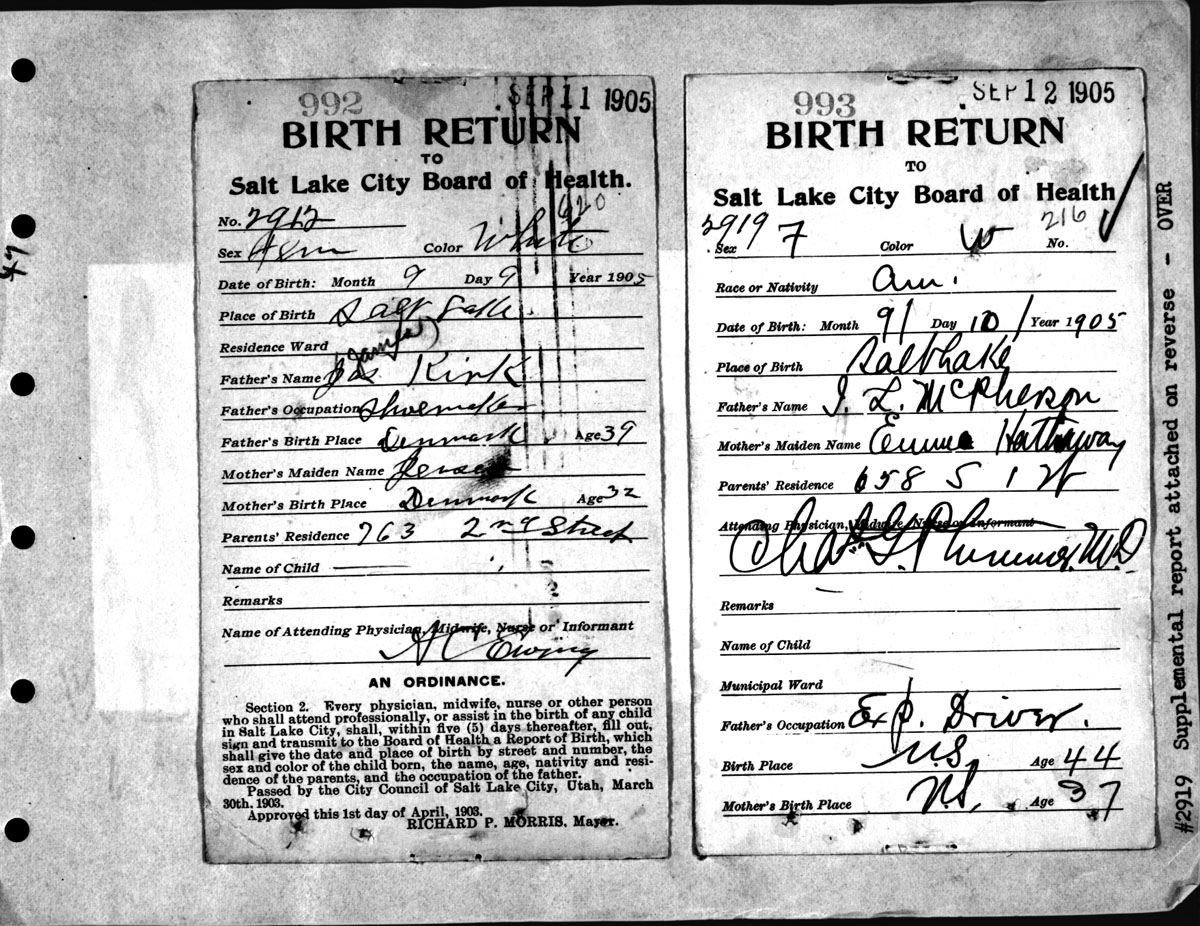 992 SEP 11 1905
BIRTH RETURN
TO
Salt Lake City Board of Health.
620
No. 2912
Sex Fem Color White
Date of Birth: Month 9 Day 9 Year 1905
Place of Birth Salt Lake
Residence Ward
Father's Name Jas Kirk
Father's Occupation Shoemaker
Father's Birth Place Denmark Age 39
Mother's Maiden Name
Mother's Birth Place Denmark Age 32
Parents' Residence 763 2nd Street
Name of Child
Remarks
Name of Attending Physician, Midwife, Nurse or Informant
A C Ewing
AN ORDINANCE.
Section 2. Every physician, midwife, nurse or other person
who shall attend professionally, or assist in the birth of any child
in Salt Lake City, shall, within five (5) days thereafter, fill out,
sign and transmit to the Board of Health a Report of Birth, which
shall give the date and place of birth by street and number, the
sex and color of the child born, the name, age, nativity and resi-
dence of the parents, and the occupation of the father.
Passed by the City Council of Salt Lake City, Utah, March
30th, 1903.
Approved this 1st day of April, 1903.
RICHARD P. MORRIS, Mayor.
993 SEP 12 1905
BIRTH RETURN
TO
Salt Lake City Board of Health
2919 216
Sex F Color W No.
Race or Nativity Am.
Date of Birth: Month 9/ Day 10/ Year 1905
Place of Birth Salt Lake
Father's Name J. L. McPherson
Mother's Maiden Name Emma Hathaway
Parents' Residence 658 S 1 W
Attending Physician, Midwife, Nurse or Informant
Chas G. Plummer, M.D.
Remarks
Name of Child
Municipal Ward
Father's Occupation Exp. Driver.
Birth Place U.S. Age 44
Mother's Birth Place U.S. Age 37
#2919 Supplemental report attached on reverse - OVER
47